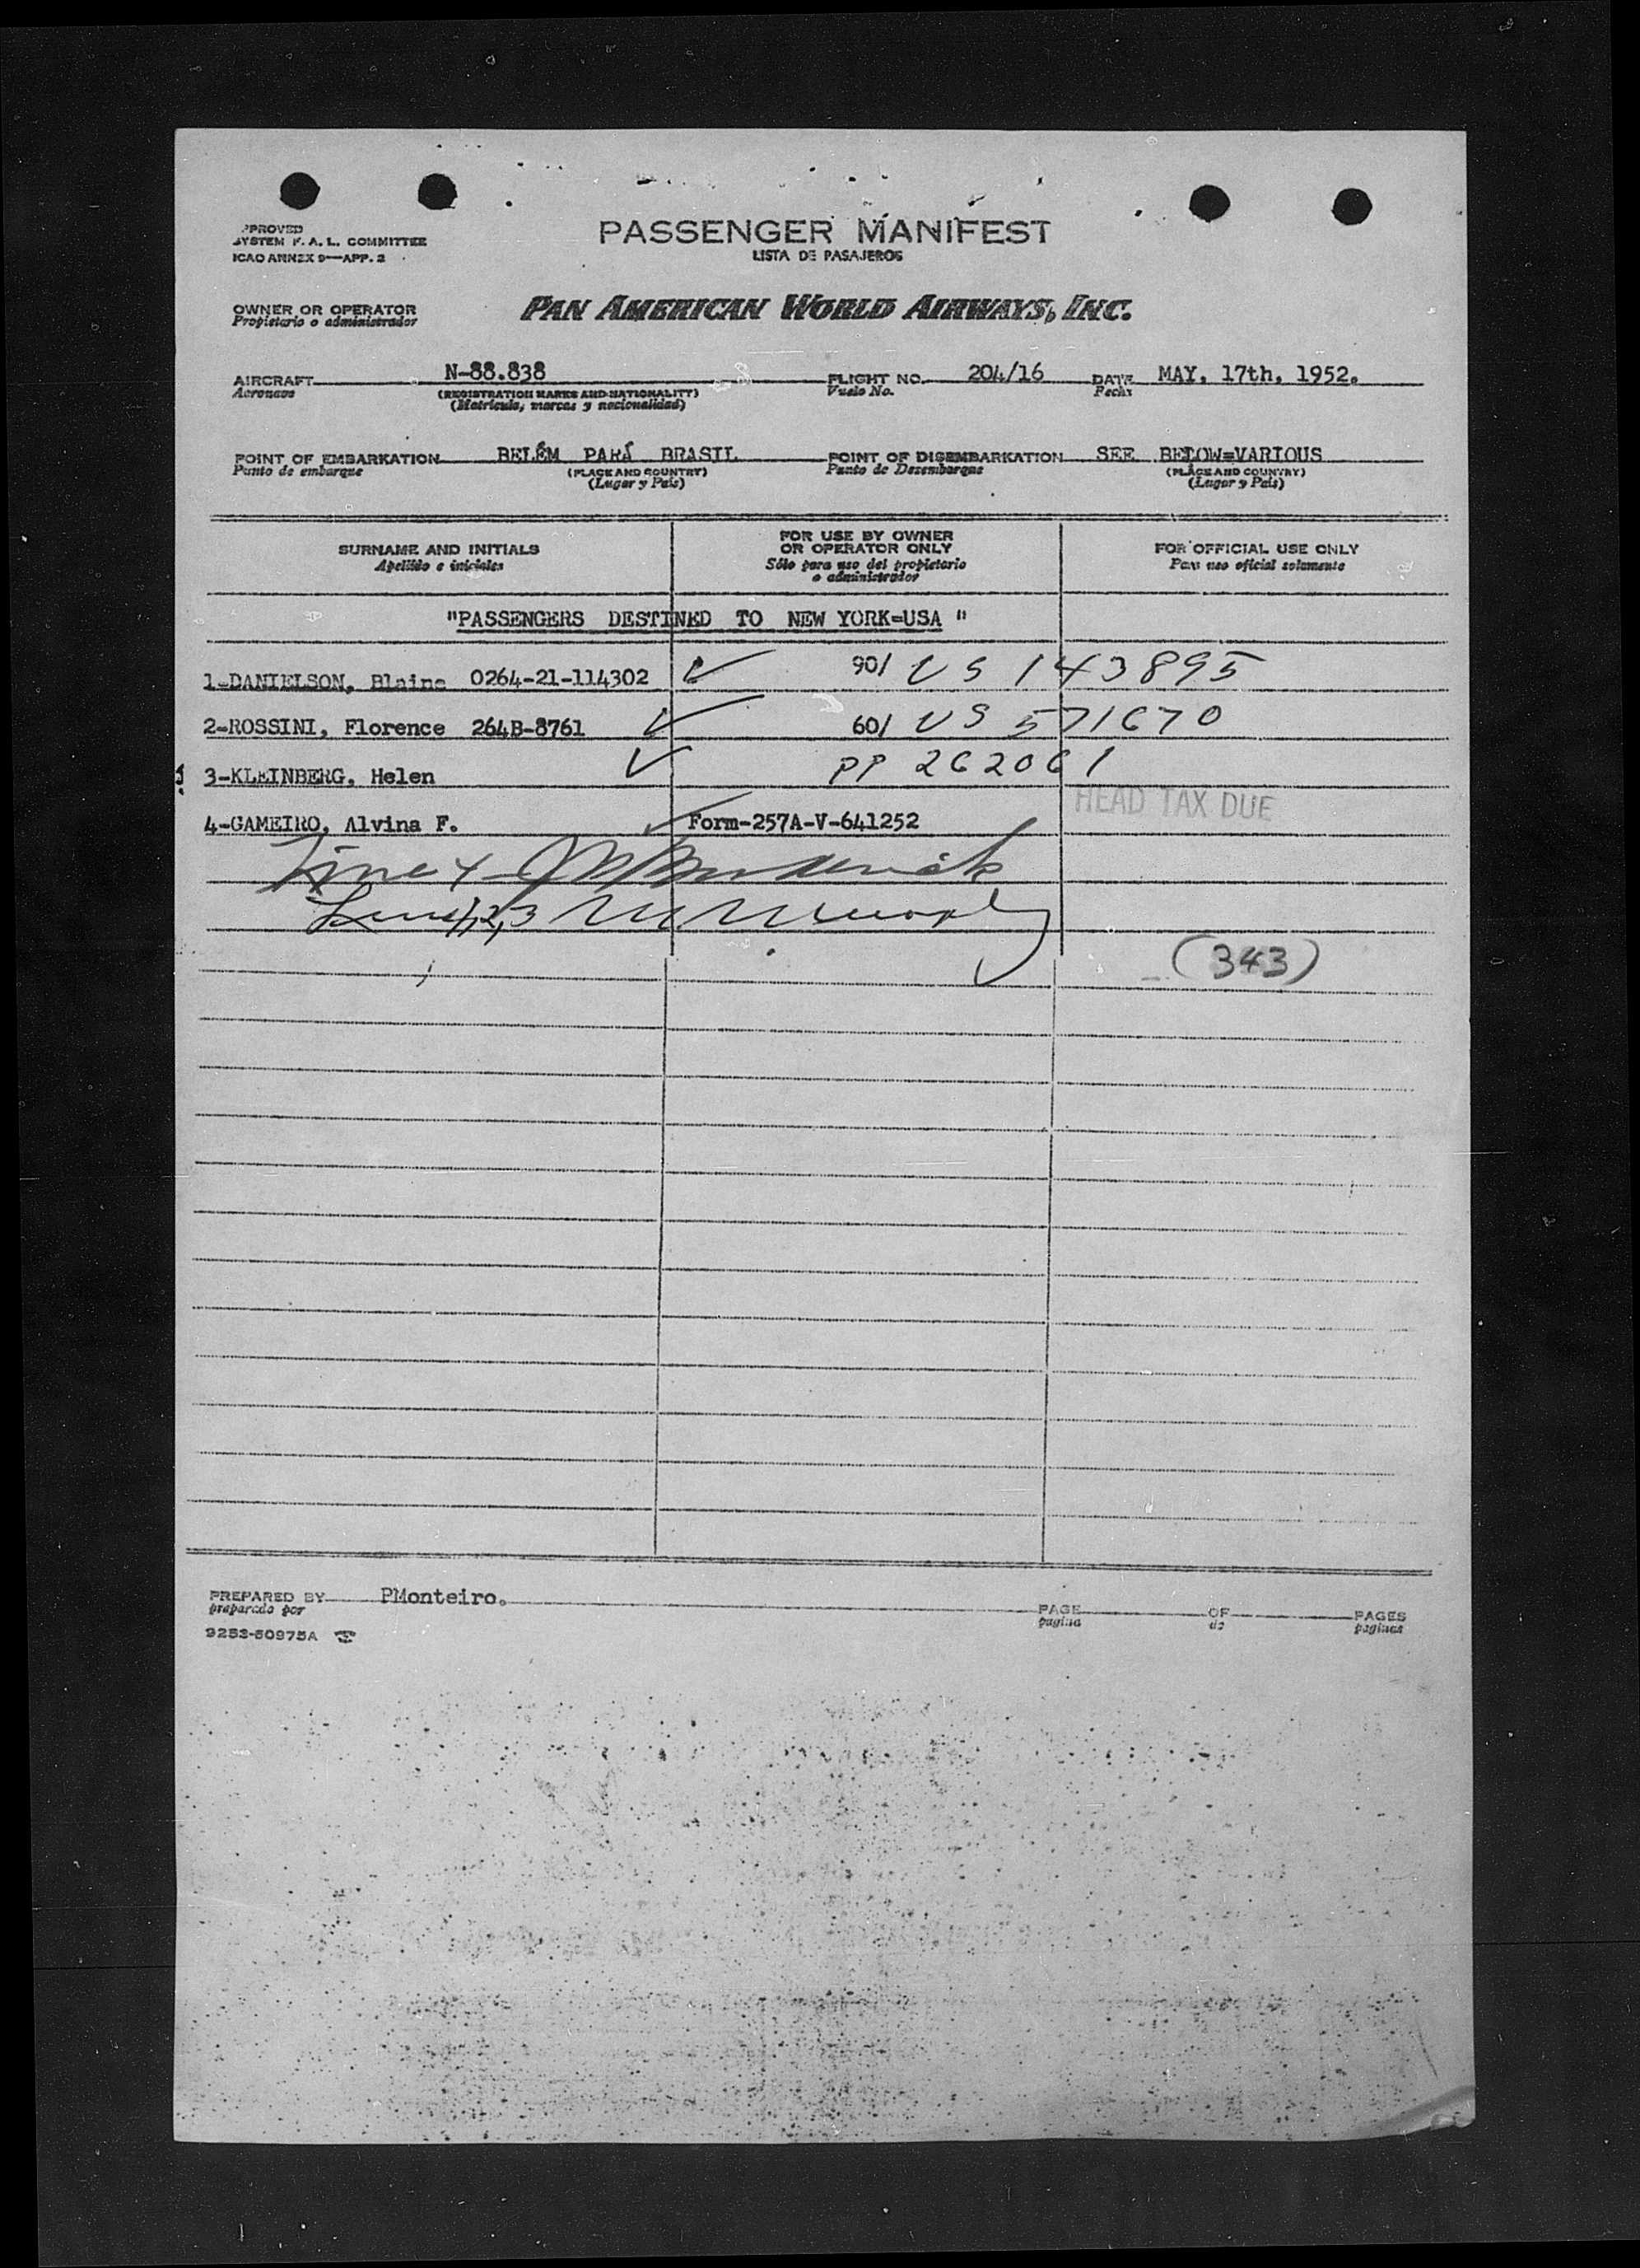 PASSENGER MANIFEST
LISTA DE PASAJEROS
SYSTEM F. A. L. COMMITTEE
ICAO ANNEX 9—APP. 2
OWNER OR OPERATOR
Propietario o administrador
PAN AMERICAN WORLD AIRWAYS, INC.
AIRCRAFT N-88.838 FLIGHT NO. 204/16 DATE MAY. 17th. 1952.
Aeronave (REGISTRATION MARKS AND NATIONALITY) Vuelo No. Fecha
(Matricula, marcas y nacionalidad)
POINT OF EMBARKATION BELÉM PARÁ BRASIL POINT OF DISEMBARKATION SEE BELOW=VARIOUS
Punto de embarque (PLACE AND COUNTRY) Punto de Desembarque (PLACE AND COUNTRY)
(Lugar y Pais) (Lugar y Pais)
SURNAME AND INITIALS
Apellido e iniciales
FOR USE BY OWNER
OR OPERATOR ONLY
Sólo para uso del propietario
o administrador
FOR OFFICIAL USE ONLY
Para uso oficial solamente
"PASSENGERS DESTINED TO NEW YORK=USA "
1-DANIELSON, Blaine 0264-21-114302 90/ US 143895
2-ROSSINI, Florence 264B-8761 60/ US 571670
3-KLEINBERG, Helen PP 262061
HEAD TAX DUE
4-GAMEIRO, Alvina F. Form-257A-V-641252
Line 4
Lines 1,2,3
(343)
PREPARED BY PMonteiro. PAGE OF PAGES
preparado por pagina de paginas
9253-50975A